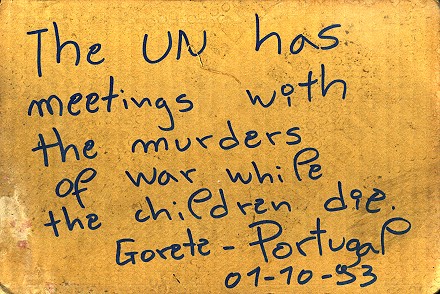 The UN has
meetings with
the murders
of war while
the children die.
Gorete - Portugal
01-10-93